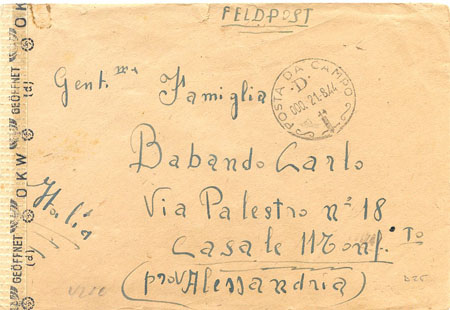 FELDPOST
POSTA DA CAMPO
-D-
000. 21.8.44
Gent.ma Famiglia
Babando Carlo
Via Palestro n° 18
Casale Monf.To
(prov Alessandria)
Italia
OKW
GEÖFFNET
(d)
OKW
GEÖFFNET
(d)